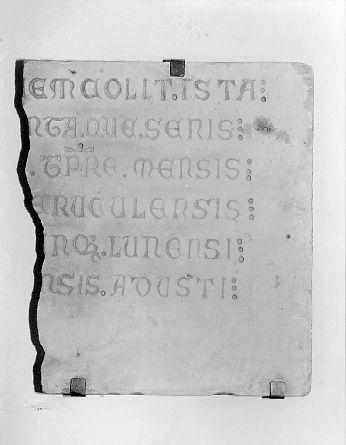 EMCOLIT.ISTA⁝
NTA.QUE.SENIS⁝
.TPRE.MENSIS⁝
ERUCULENSIS⁝
INQ.LUNENSI⁝
NSIS.ADUSTI⁝